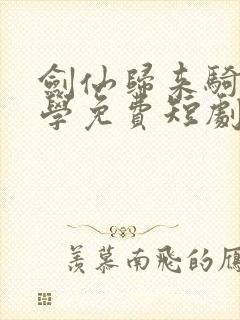 劍仙歸來騎
學免費短劇
羨慕南飛的雁